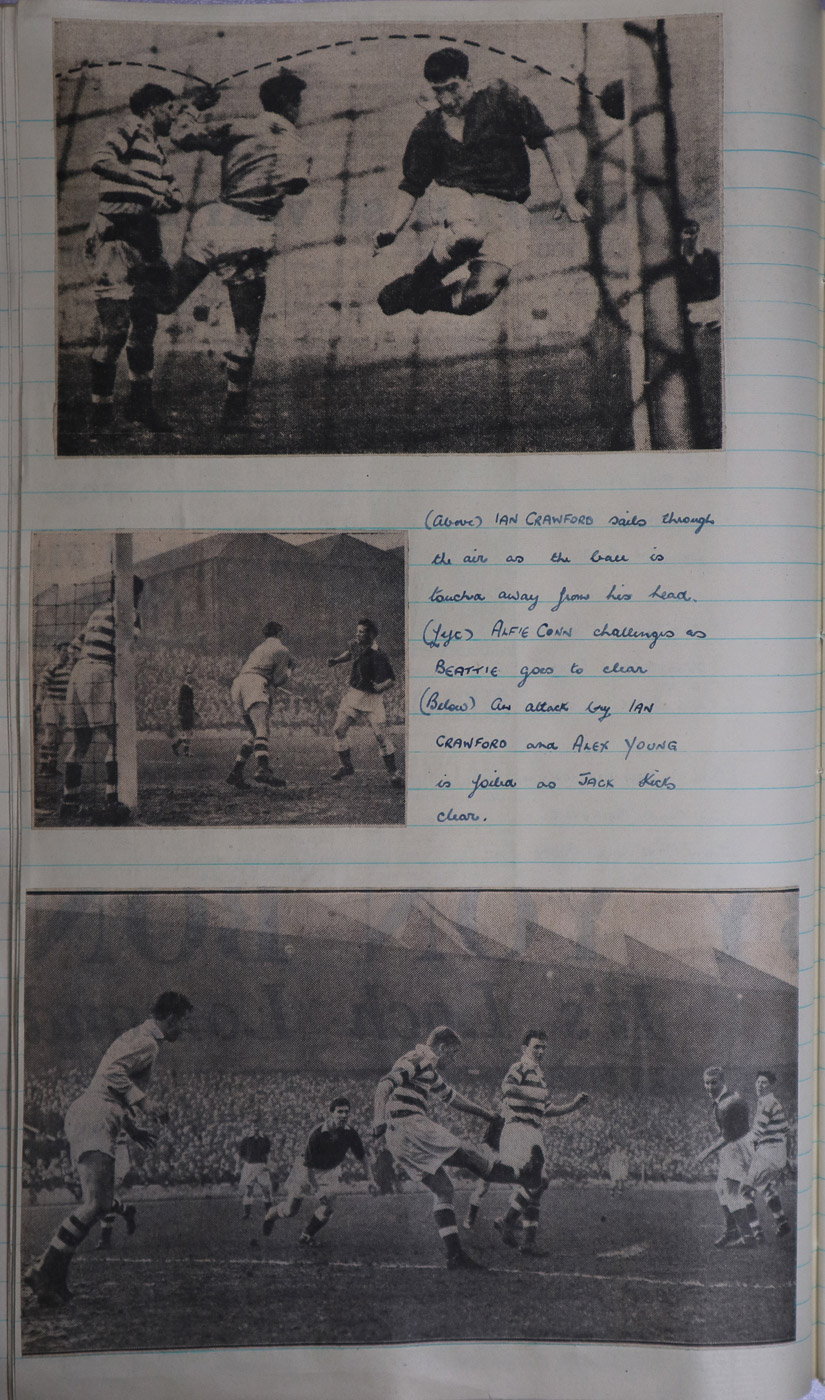 (Above) IAN CRAWFORD sails through
the air as the ball is
touched away from his head.
(Left) ALFIE CONN challenges as
BEATTIE goes to clear
(Below) An attack by IAN
CRAWFORD and ALEX YOUNG
is foiled as JACK kicks
clear.